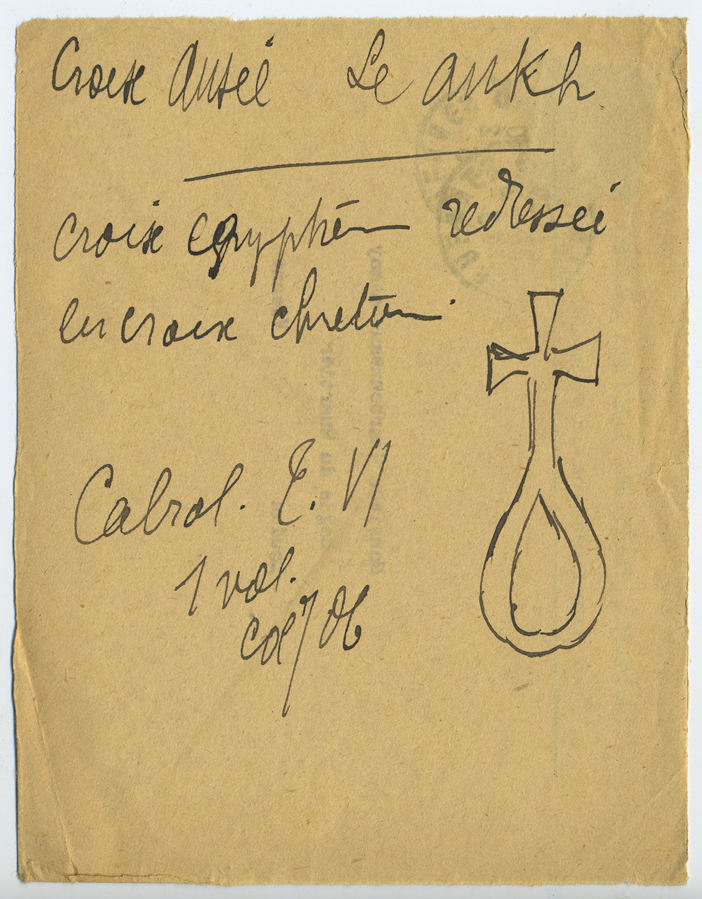 Croix Ansée Le ankh
croix egyptien redressée
en croix chretien.
Cabrol. T. VI
1 vol.
col 706